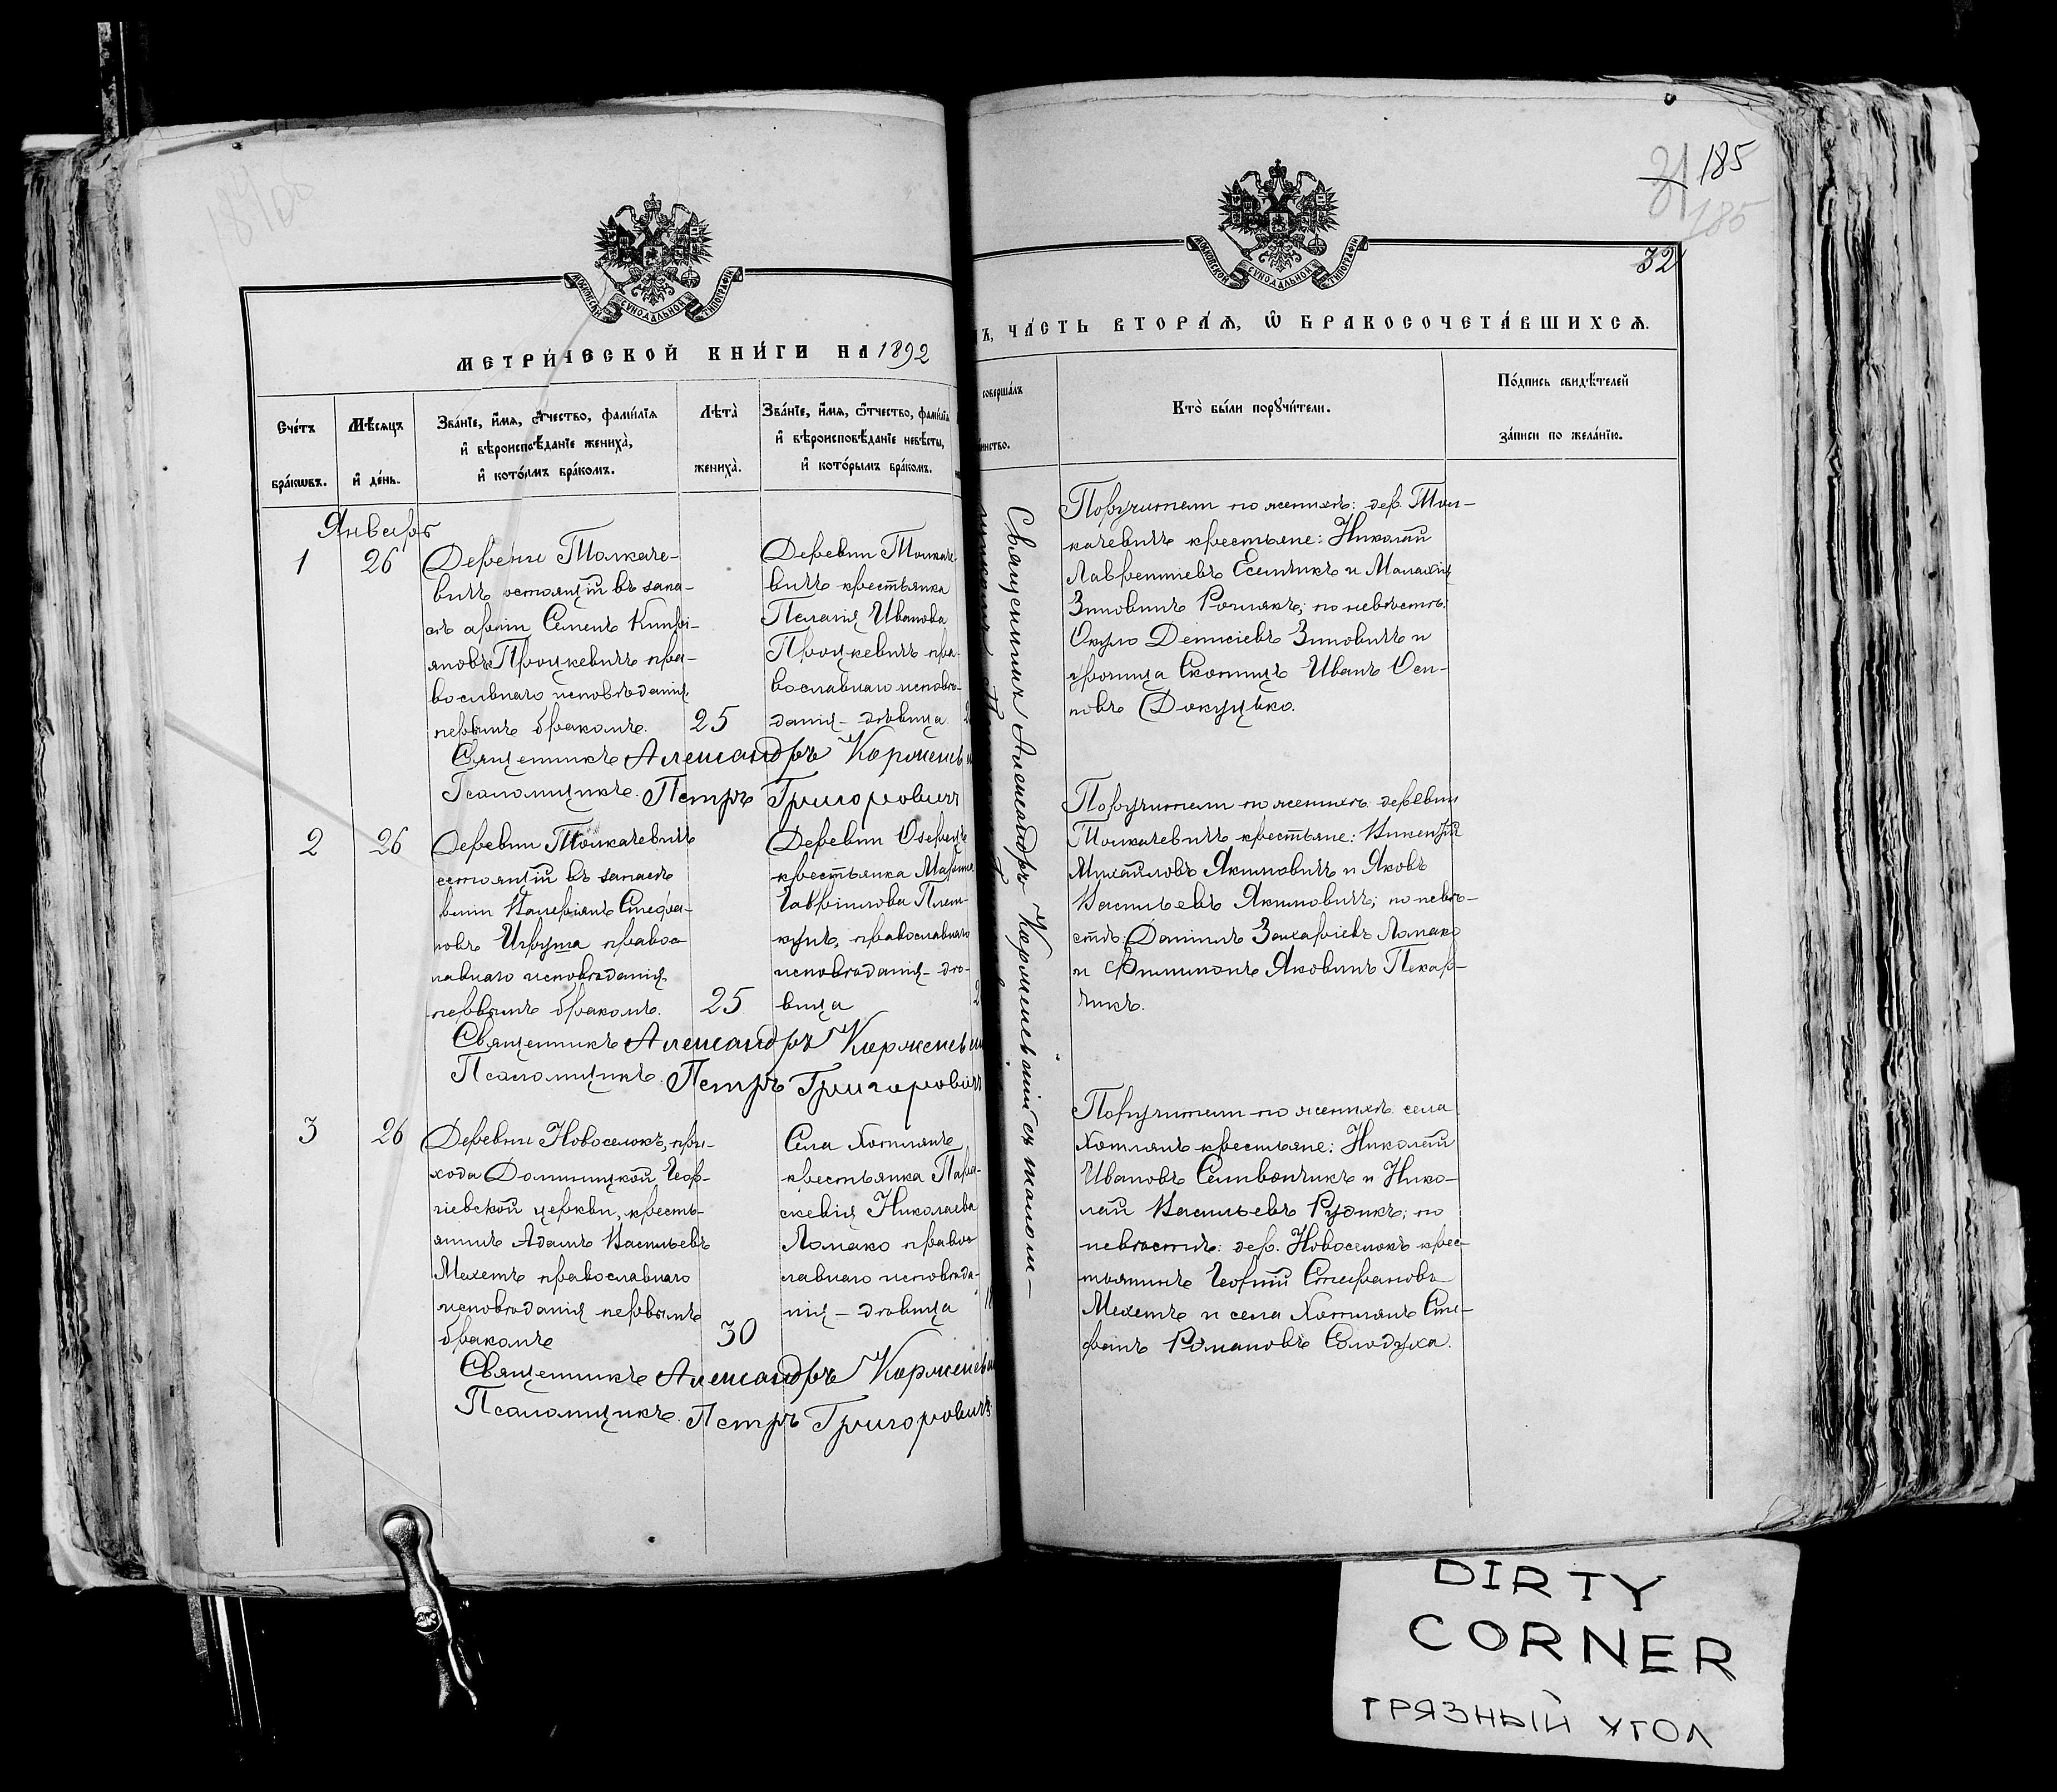 МОСКОВСКОЙ СѴНОДАЛЬНОЙ ТИПОГРАФІИ
МЕТРИ́ЧЕСКОЙ КНИ́ГИ НА 1892
Сче́тъ бра́кωвъ.
Мѣ́сяцъ и҆ де́нь.
Зва́нїе, и҆́мя, ѻ҆́тчество, фами́лїя
и҆ вѣроисповѣ́данїе жениха̀,
и҆ кото́рымъ бра́комъ.
Лѣта̀ жениха̀.
Зва́нїе, и҆́мя, ѻ҆́тчество, фами́лїя
и҆ вѣроисповѣ́данїе невѣ́сты,
и҆ кото́рымъ бра́комъ.
Январь
1 26
Деревни Толкаче-
вичъ состоящій въ запа-
сѣ арміи Семенъ Кипрі-
яновъ Процкевичъ пра-
вославнаго исповѣданія,
первымъ бракомъ.
25
Деревни Толкаче-
вичъ крестьянка
Пелагія Иванова
Процкевичъ пра-
вославнаго исповѣ-
данія – дѣвица
Священникъ Александръ
Псаломщикъ Петръ Григоровичъ
2 26
Деревни Толкачевичъ
состоящій въ запасѣ
арміи Валеріянъ Стефа-
новъ правос
лавнаго исповѣданія
первымъ бракомъ.
25
Деревни
крестьянка Марѳа
Гавріилова
православнаго
исповѣданія – дѣ-
вица
Священникъ Александръ
Псаломщикъ Петръ Григоровичъ
3 26
Деревни Новоселокъ, при-
хода Долиницкой Геор-
гіевской церкви, кресть-
янинъ Адамъ Васильевъ
Мехетъ православнаго
исповѣданія первымъ
бракомъ
30
Села Хотлянъ
крестьянка Пара-
скевія Николаева
Ломако правос
лавнаго исповѣда-
нія – дѣвица
18
Священникъ Александръ
Псаломщикъ Петръ Григоровичъ
185
185
32
МОСКОВСКОЙ СѴНОДАЛЬНОЙ ТИПОГРАФІИ
ЧА́СТЬ ВТОРА́Я, Ѽ БРАКОСОЧЕТА́ВШИХСЯ.
соверша́лъ
Кто̀ бы́ли порꙋчи́тели.
По́дпись свидѣ́телей
за́писи по жела́нїю.
Священникъ Александръ съ псалом-
Поручители по женихѣ: дер. Тол-
качевичъ крестьяне: Николай
Лаврентіевъ и Малахія
Зиновичъ по невѣстѣ:
Денисіевъ Зиновичъ и
Иванъ Оси-
повъ Докучько.
Поручители по женихѣ деревни
Толкачевичъ крестьяне: Викентій
Михайловъ Якимовичъ и Яковъ
Васильевъ Якимовичъ; по невѣ-
стѣ: Даніилъ Захаріевъ Ломако
и Филимонъ Яковлевъ Пекар-
чикъ.
Поручители по женихѣ села
Хотлянъ крестьяне: Николай
Ивановъ Селивончикъ и Нико-
лай Васильевъ Рудикъ; по
невѣстѣ: дер. Новоселокъ крес-
тьянинъ Георгій Стефановъ
Мехетъ и села Хотлянъ Сте-
фанъ Романовъ Солодуха.
DIRTY
CORNER
ГРЯЗНЫЙ УГОЛ